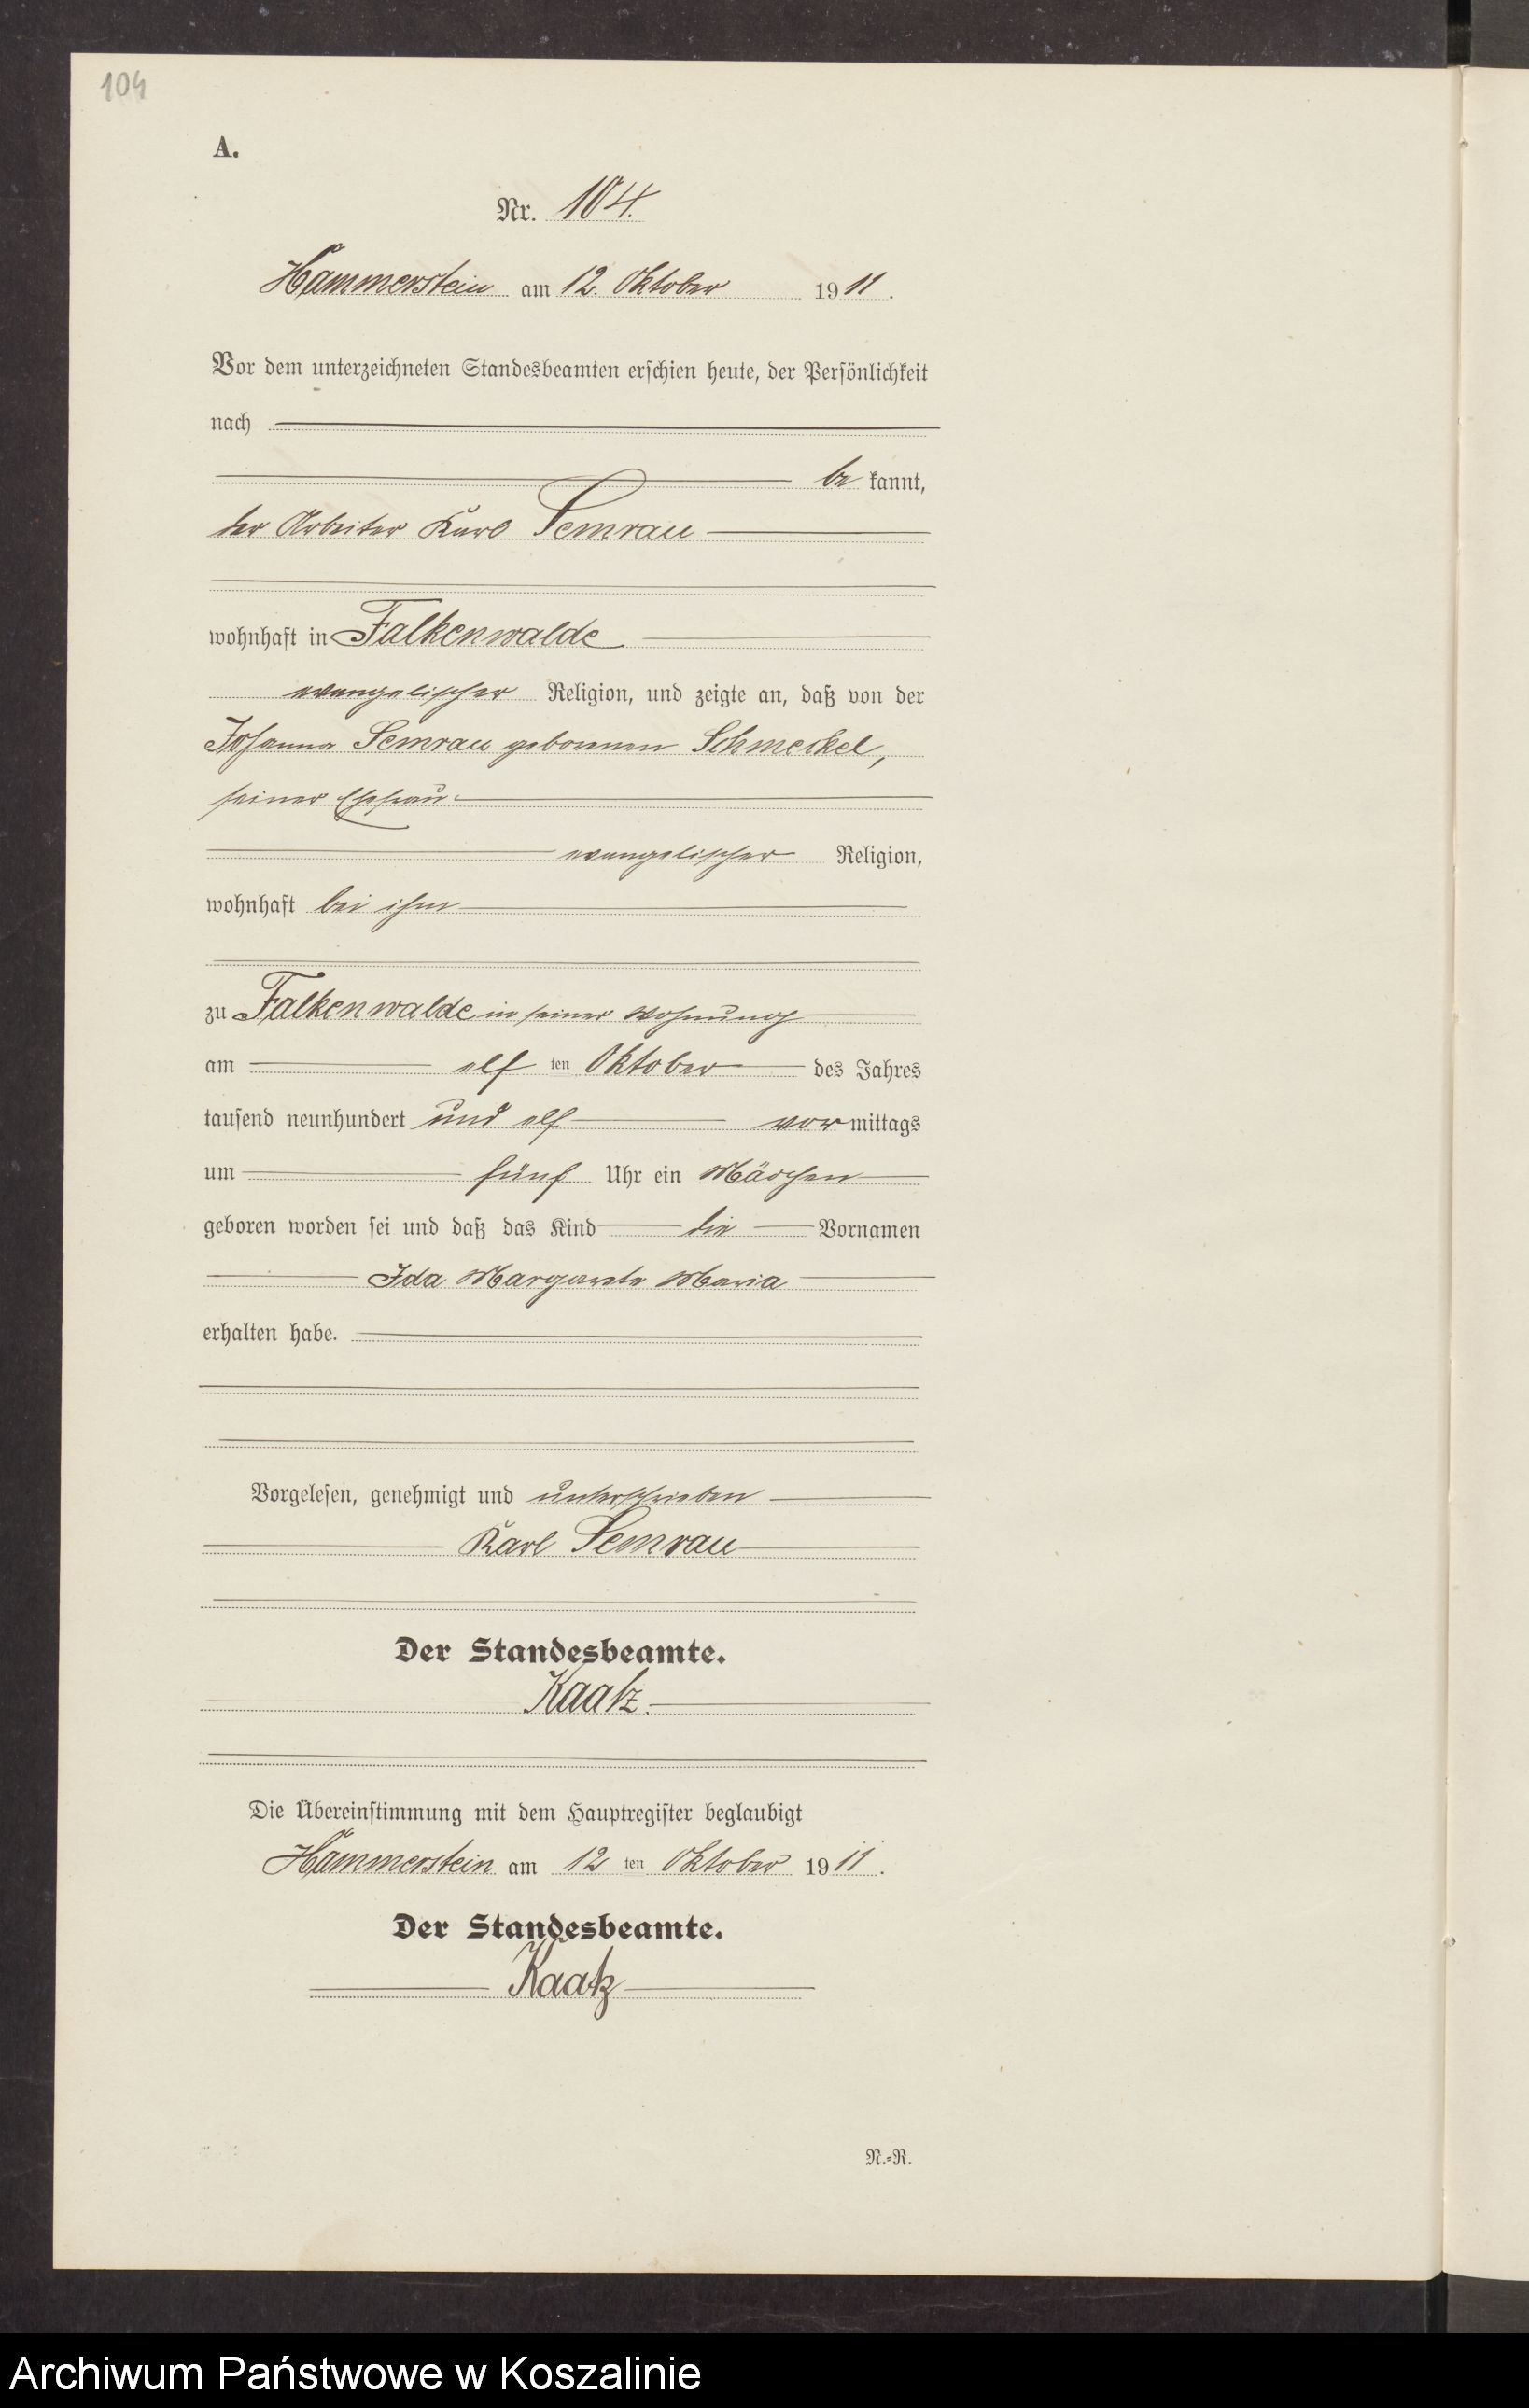 104
A.
Nr. 104.
Hammerstein am 12. Oktober 1911.
Vor dem unterzeichneten Standesbeamten erschien heute, der Persönlichkeit
nach
be kannt,
der Arbeiter Karl Semrau
wohnhaft in Falkenwalde
evangelischer Religion, und zeigte an, daß von der
Johanna Semrau geborenen Schmeckel,
seiner Ehefrau
evangelischer Religion,
wohnhaft bei ihm
zu Falkenwalde in seiner Wohnung
am elf ten Oktober des Jahres
tausend neunhundert und elf vor mittags
um fünf Uhr ein Mädchen
geboren worden sei und daß das Kind die Vornamen
Ida Margarete Maria
erhalten habe.
Vorgelesen, genehmigt und unterschrieben
Karl Semrau
Der Standesbeamte.
Kaatz.
Die Übereinstimmung mit dem Hauptregister beglaubigt
Hammerstein am 12 ten Oktober 1911.
Der Standesbeamte.
Kaatz
N.=R.
Archiwum Państwowe w Koszalinie